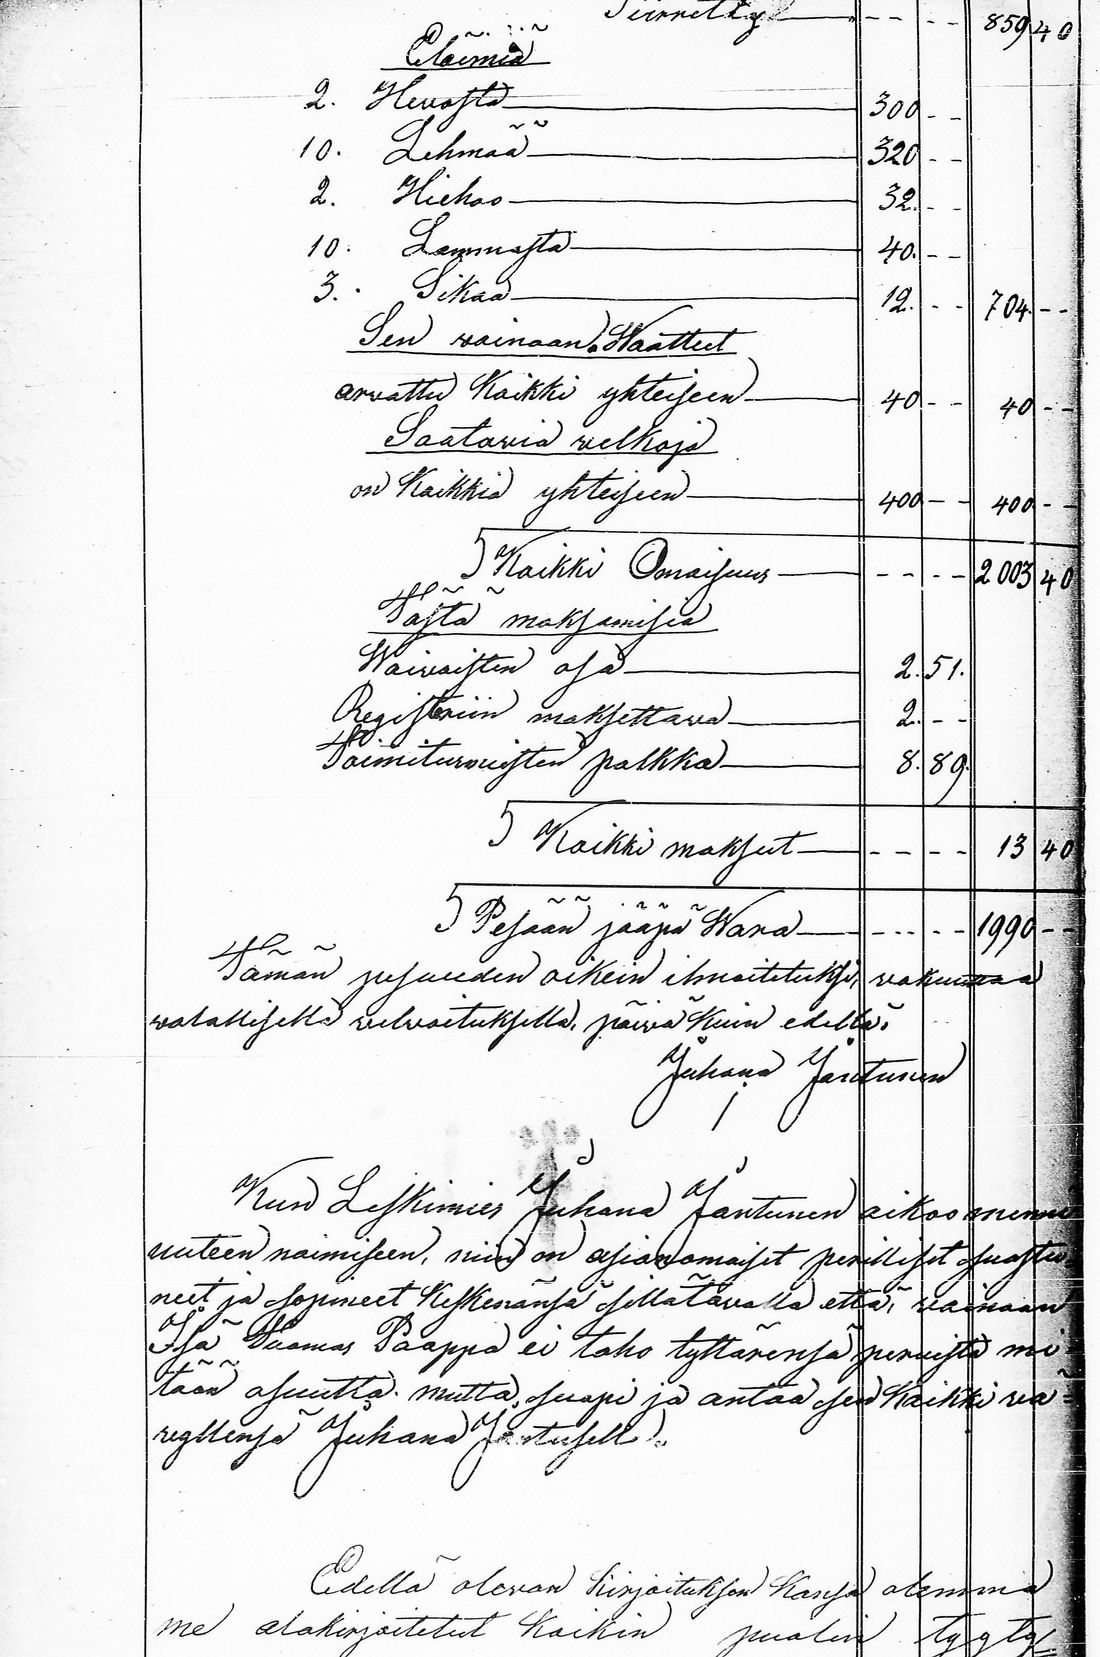 Siirretty - - - - 859 40
Eläimiä
2. Hevosta 300 - -
10. Lehmää 320 - -
2. Hiehoo 32. - -
10. Lammasta 40. - -
3. Sikaa 12. - - 704 - -
Sen vainaan Waatteet
arvattu Kaikki yhteiseen 40 - - 40 - -
Saatavia velkoja
on Kaikkia yhteiseen 400 - - 400 - -
Kaikki Omaisuus - - - - - 2003 40
Tästä maksamisia
Waivaisten osa 2. 51.
Registeriin maksettava 2. - -
Toimitusmiesten palkka 8. 89.
Kaikki maksut - - - - 13 40
Pesään jääpä Wara - - - - 1990 - -
Tämän pesueeden oikein ilmoitetuksi, vakuuttaa
valallisella velvoituksella, päivä Kuin edellä.
Juhana Jantunen
Kun Leskimies Juhana Jantunen aikoo mennä
uuteen naimiseen, niin on asianomaiset perilliset suostu-
neet ja sopineet Keskenänsä sillätavalla että, vainaan
Isä Tuomas Paappa ei taho tyttärensä perruista mi-
tään osuutta. mutta suapi ja antaa sen Kaikki vä-
vyllensä Juhana Jantusell.
Edellä olevan Kirjoituksen Kansa olemma
me alakirjoitetut Kaikin puolin tyytyv